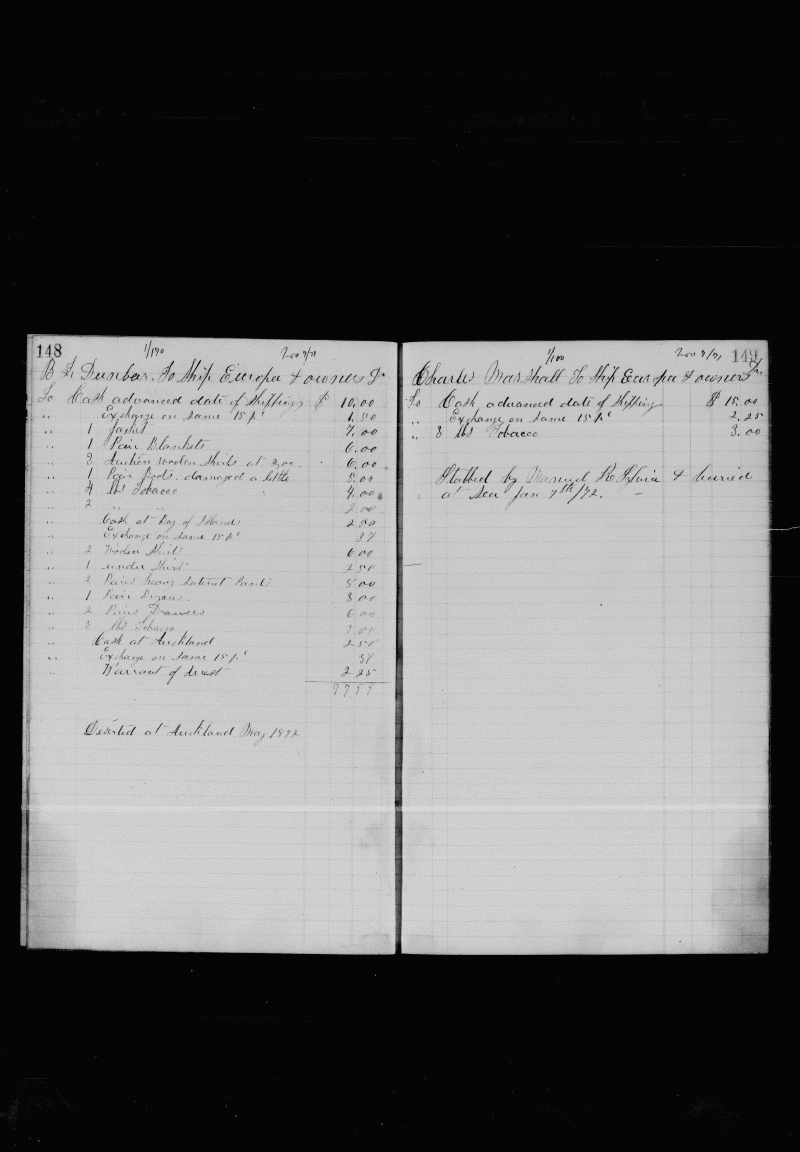 148
1/190
Nov 7/71
B F Dunbar. To Ship Europa & owners Dr
To Cash advanced date of Shipping $ 10.00
" Exchange on same 15 pc 1.50
" 1 Jacket 7.00
" 1 Pair Blankets 6.00
" 3 woolen Shirts at 2.00. 6.00
" 1 Pair Boots. damaged a little 5.00
" 4 lbs Tobacco 4.00
" 2 " " 2.00
" Cash at Bay of Islands 2.50
" Exchange on same 15 pc 37
" 2 Woolen Shirts 6.00
" 1 under Shirt 2.50
" 2 Pairs Pants 5.00
" 1 Pair Brogans. 3.00
" 2 Pairs Drawers 6.00
" 3 lbs Tobacco 3.00
" Cash at Auckland 2.50
" Exchange on same 15 pc 37
" Warrant of Arrest 2.25
Deserted at Auckland May 1872
1/100
Nov 7/71
149
Charles Marshall To Ship Europa & owners Dr
To Cash advanced date of Shipping $ 15.00
" Exchange on same 15 pc 2.25
" 3 lbs Tobacco 3.00
Stabbed by Manuel & buried
at Sea Jan 7th/72. —